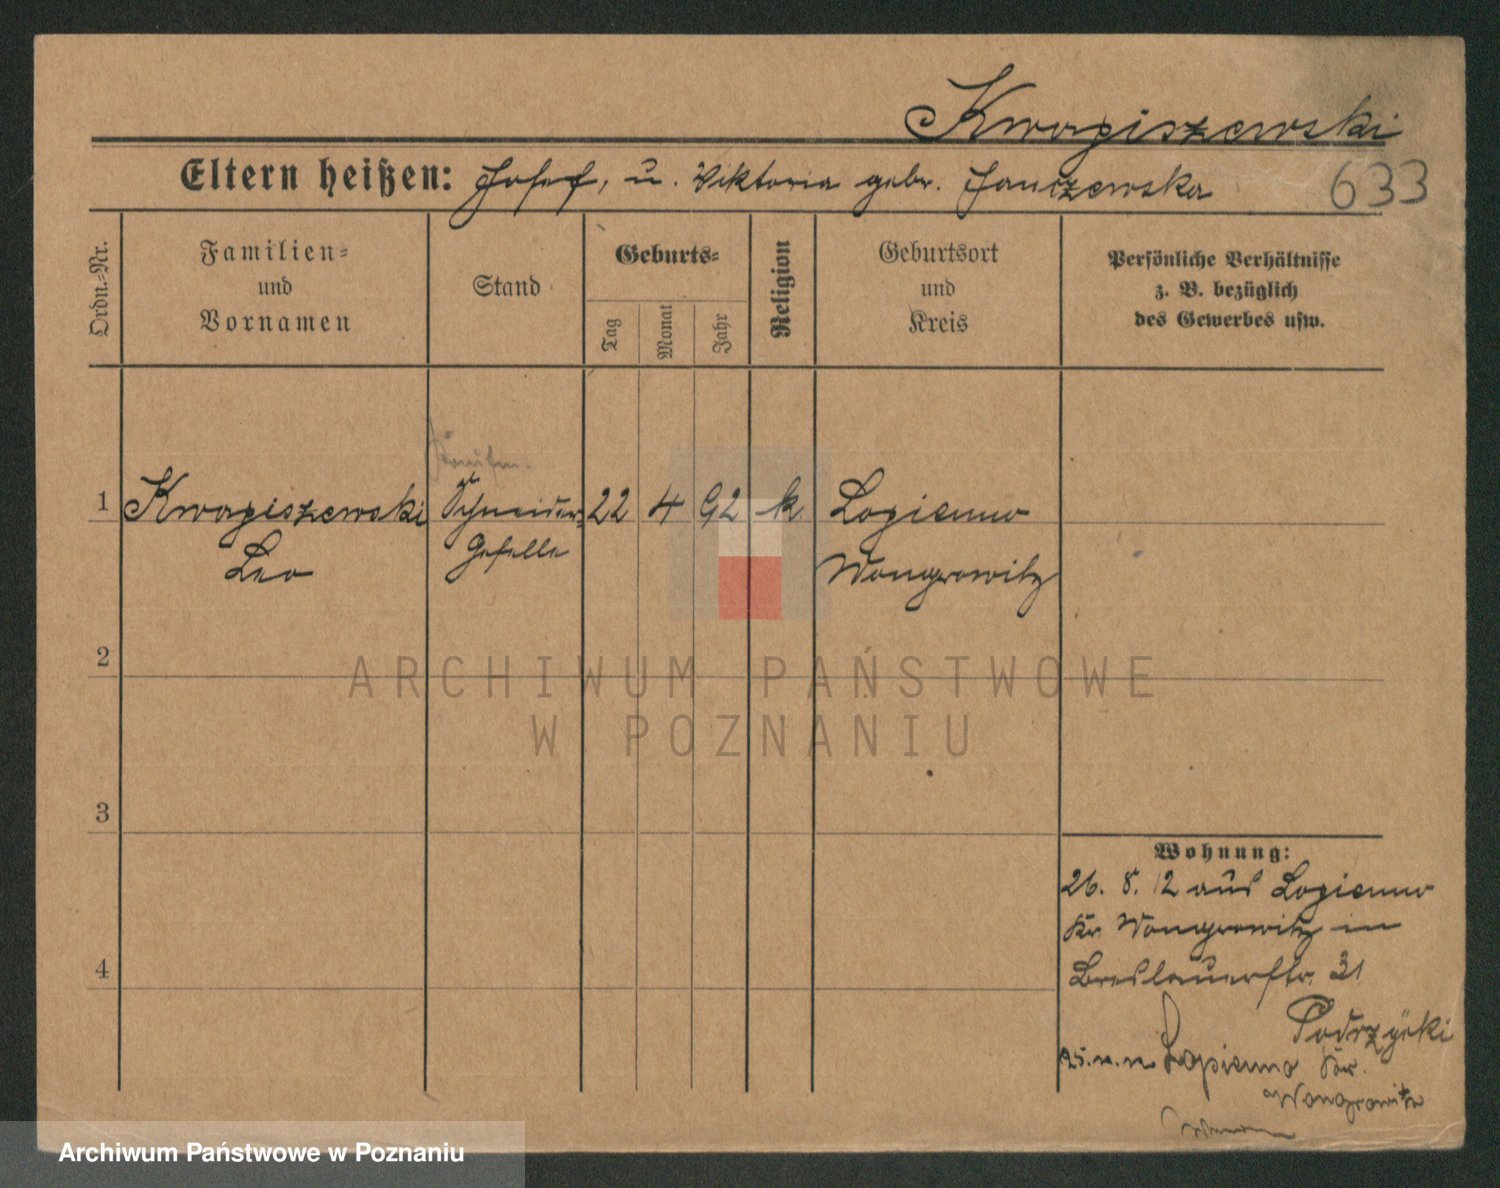 Kwapiszewski
Eltern heißen: Josef, u. Viktoria gebr. Janczewska
633
Ordn.=Nr.
Familien=
und
Vornamen
Stand
Geburts=
Tag
Monat
Jahr
Religion
Geburtsort
und
Kreis
Persönliche Verhältnisse
z. B. bezüglich
des Gewerbes usw.
1 Kwapiszewski Schneider= 22 4 92 k. Lopienno
Leo Geselle Wongrowitz
2
ARCHIWUM PAŃSTWOWE
W POZNANIU
3
Wohnung:
26. 8. 12 aus Lopienno
Kr. Wongrowitz in
4
Breslauerstr. 31
Podrzycki
Lopienno Kr.
Wongrowitz
Archiwum Państwowe w Poznaniu